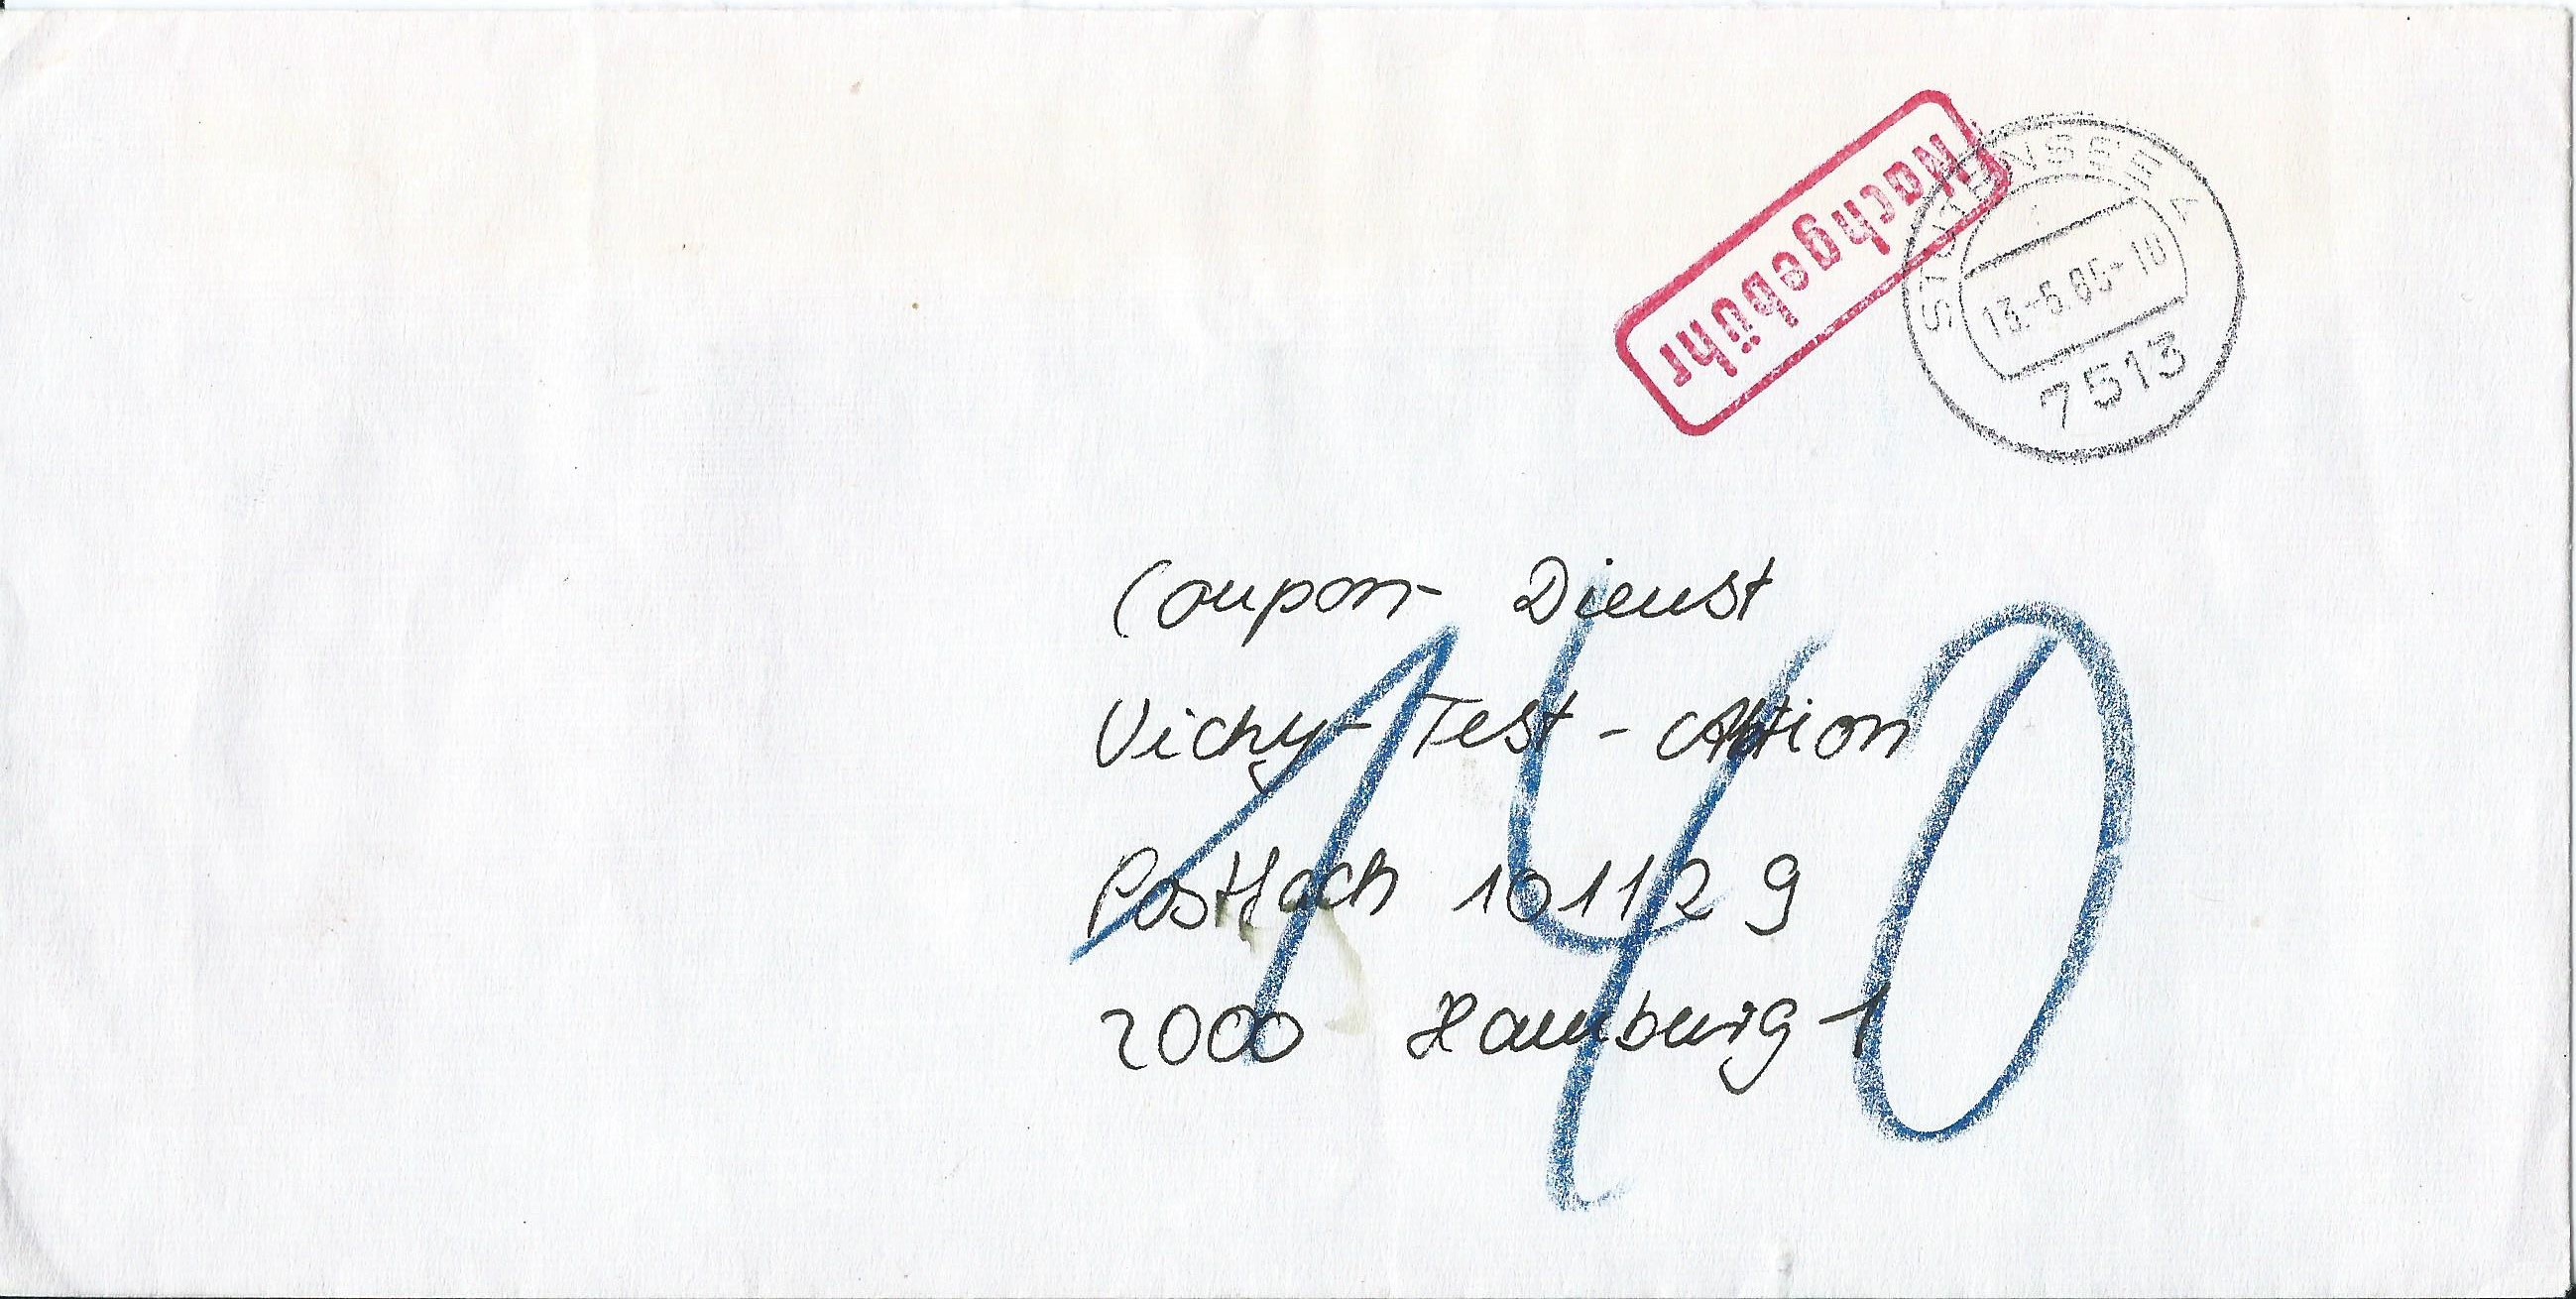 Nachgebühr
STUTENSEE 4
13.-5.85-18
7513
Coupon- Dienst
Vichy- Test - Aktion
Postfach 101129
2000 Hamburg 1
140